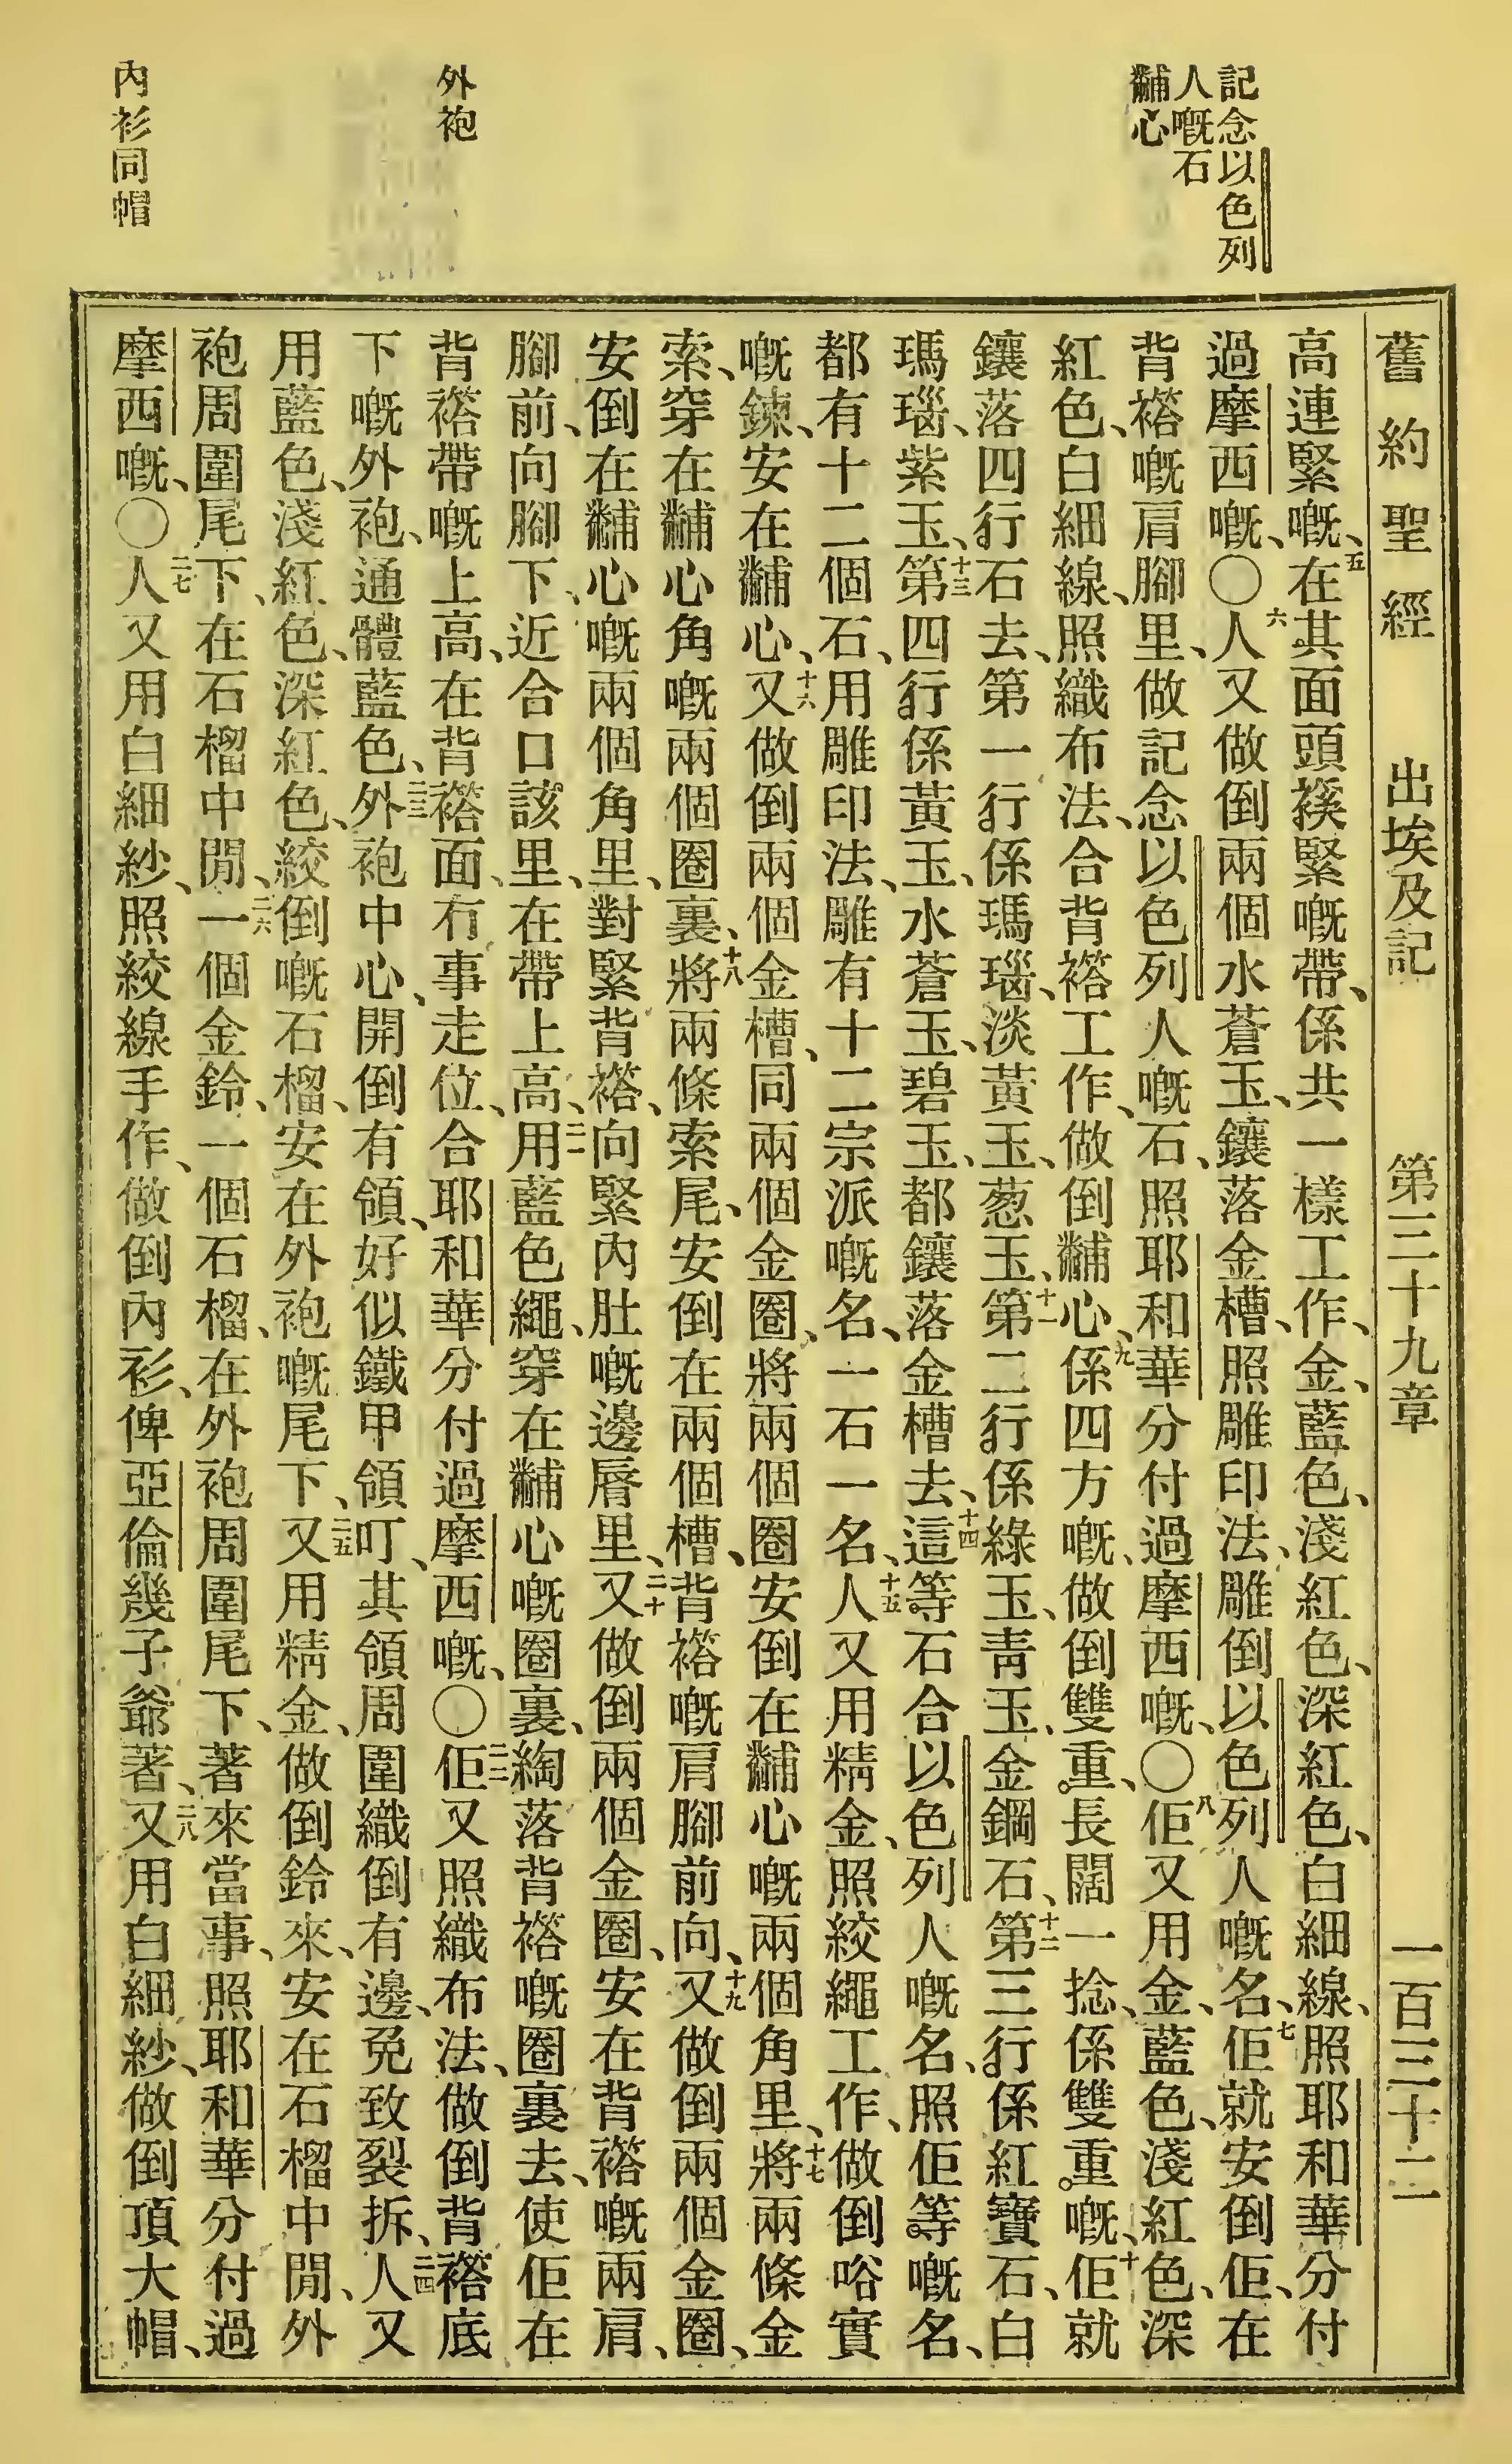 記念以色列
人嘅石
黼心
外袍
內衫同帽
舊約聖經 出埃及記 第三十九章 一百三十二
高連緊嘅、五在其面頭䙆緊嘅帶、係共一樣工作、金、藍色、淺紅色、深紅色、白細線、照耶和華分付
過摩西嘅、〇六人又做倒兩個水蒼玉、鑲落金槽、照雕印法、雕倒以色列人嘅名、七佢就安倒佢、在
背褡嘅肩腳里、做記念以色列人嘅石、照耶和華分付過摩西嘅、〇八佢又用金、藍色、淺紅色、深
紅色、白細線、照織布法、合背褡工作、做倒黼心、九係四方嘅、做倒雙重、長闊一捻、係雙重嘅、十佢就
鑲落四行石去、第一行係瑪瑙、淡黃玉、葱玉、十一第二行係綠玉、靑玉、金鋼石、十二第三行係紅寶石、白
瑪瑙、紫玉、十三第四行係黃玉、水蒼玉、碧玉、都鑲落金槽去、十四這等石合以色列人嘅名、照佢等嘅名、
都有十二個石、用雕印法、雕有十二宗派嘅名、一石一名、十五人又用精金、照絞繩工作、做倒㗀實
嘅鍊、安在黼心、十六又做倒兩個金槽、同兩個金圈、將兩個圈安倒在黼心嘅兩個角里、十七將兩條金
索、穿在黼心角嘅兩個圈裏、十八將兩條索尾、安倒在兩個槽、背褡嘅肩腳前向、十九又做倒兩個金圈、
安倒在黼心嘅兩個角里、對緊背褡、向緊內肚嘅邊脣里、二十又做倒兩個金圈、安在背褡嘅兩肩、
腳前、向腳下、近合口該里、在帶上高、二一用藍色繩、穿在黼心嘅圈裏、綯落背褡嘅圈裏去、使佢在
背褡帶嘅上高、在背褡面、冇事走位、合耶和華分付過摩西嘅、〇二二佢又照織布法、做倒背褡底
下嘅外袍、通體藍色、二三外袍中心、開倒有領、好似鐵甲領叮、其領周圍織倒有邊、免致裂拆、二四人又
用藍色、淺紅色、深紅色、絞倒嘅石榴、安在外袍嘅尾下、二五又用精金、做倒鈴來、安在石榴中閒、外
袍周圍尾下、在石榴中閒、二六一個金鈴、一個石榴、在外袍周圍尾下、著來當事、照耶和華分付過
摩西嘅、〇二七人又用白細紗、照絞線手作、做倒內衫、俾亞倫幾子爺著、二八又用白細紗、做倒頂大帽、